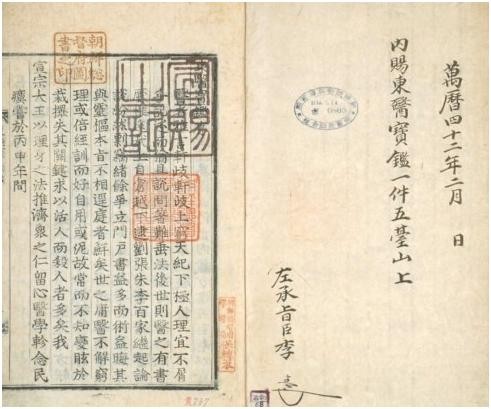 萬曆四十二年二月 日
內賜東醫寶鑑一件五臺山上
左承旨臣李
朝鮮總
督府圖
書之印
軒岐軒岐上窮天紀下極人理宜不屑
而猶且說問著難垂法後世則醫之有書
上自倉越下逮劉張朱李百家繼起論
說紛然剽竊緖餘爭立門戶書益多而術益晦其
與靈樞本旨不相逕庭者鮮矣世之庸醫不解窮
理或倍經訓而好自用或泥故常而不知變眩於
裁擇失其關鍵求以活人而殺人者多矣我
宣宗大王以理身之法推濟衆之仁留心醫學軫念民
瘼嘗於丙申年間